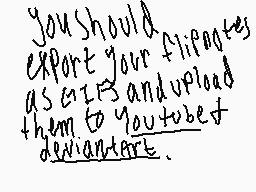 you should
export your flipnotes
as GIFs and upload
them to youtube &
deviantart.